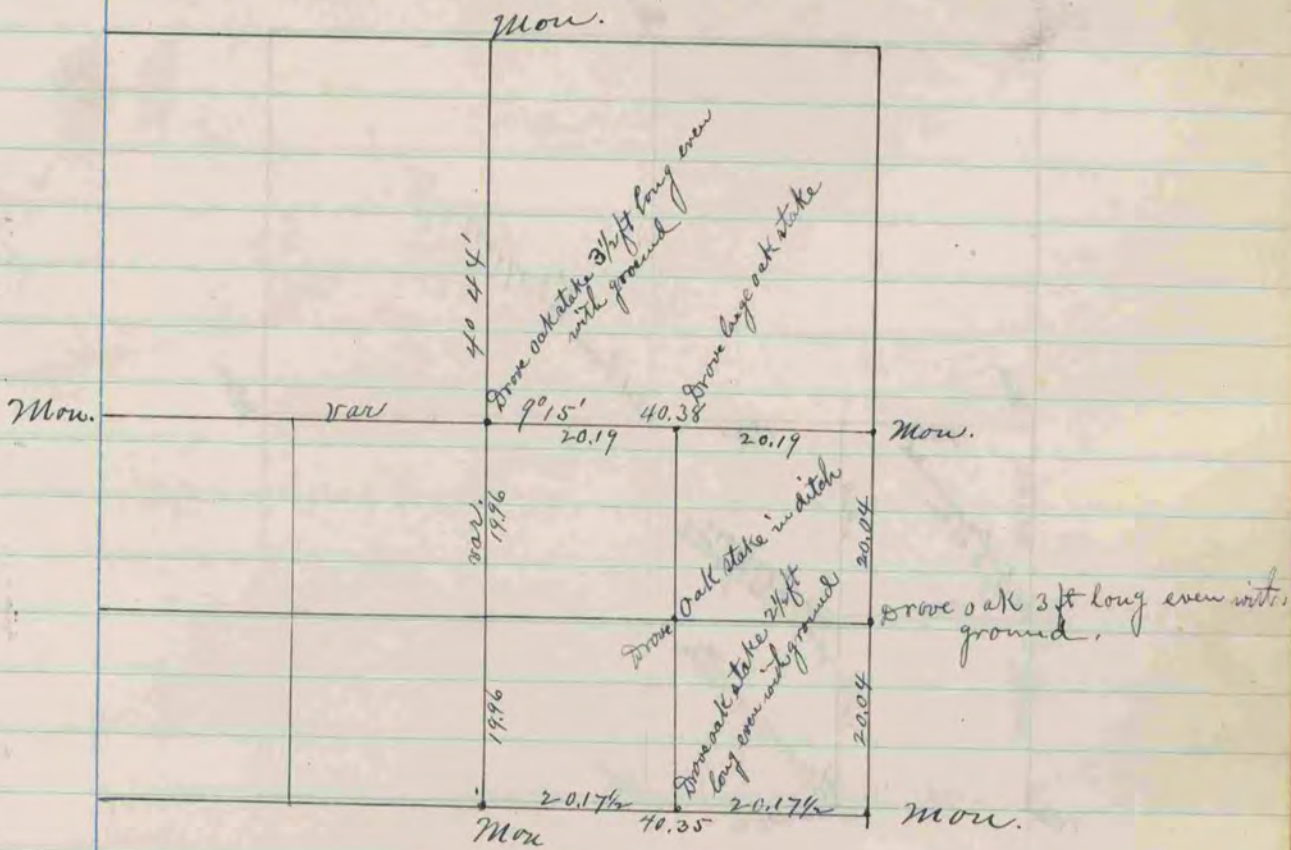 Mon.
Drove oak stake 3½ ft long even
with ground
Drove large oak stake
4° 44'
Mon.
var
9°15'
40.38
20.19
20.19
Mon.
var.
19.96
Drove Oak stake in ditch
20.04
Drove oak 3 ft long even with
ground.
Drove oak stake 2½ ft
long even with ground
19.96
20.04
20.17½
20.17½
40.35
Mon
Mon.